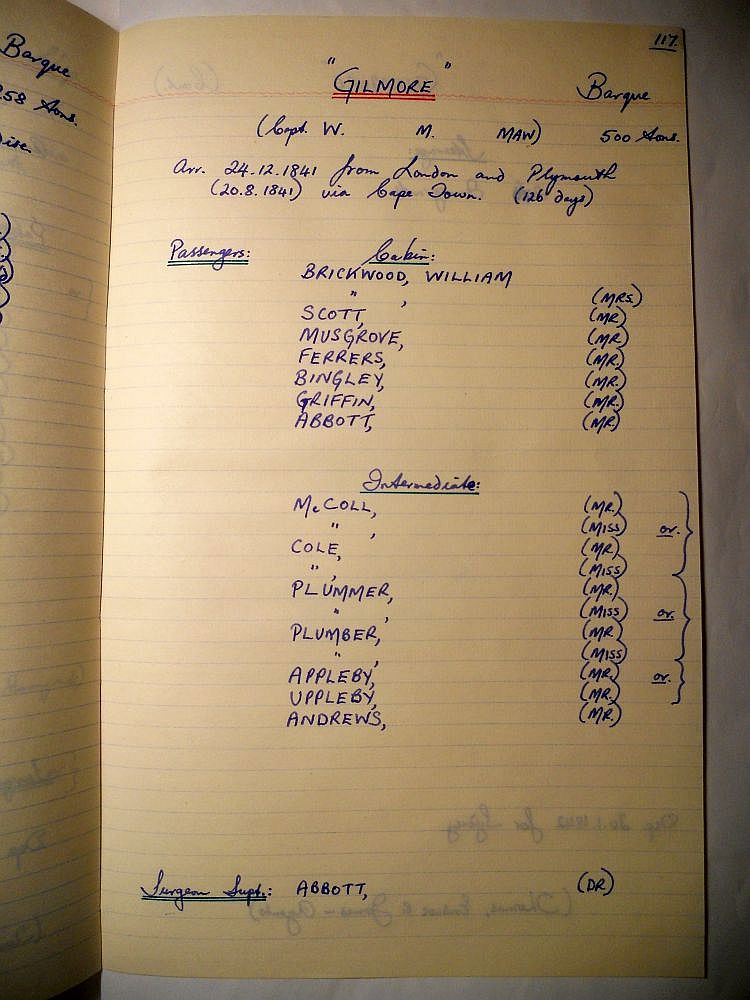 117.
"GILMORE" Barque
(Capt. W. M. MAW) 500 Tons.
Arr. 24.12.1841 from London and Plymouth
(20.8.1841) via Cape Town. (126 days)
Passengers: Cabin:
BRICKWOOD, WILLIAM
" , (MRS.)
SCOTT, (MR)
MUSGROVE, (MR)
FERRERS, (MR.)
BINGLEY, (MR.)
GRIFFIN, (MR.)
ABBOTT, (MR)
Intermediate:
McCOLL, (MR.)
" , (MISS) or.
COLE, (MR)
" , (MISS)
PLUMMER, (MR.)
" , (MISS) or.
PLUMBER, (MR
" , (MISS)
APPLEBY, (MR. or.
UPPLEBY, (MR.)
ANDREWS, (MR.)
Surgeon Supt.: ABBOTT, (DR)
Barque
258 Tons.
Dep 20.1.1842 for Sydney